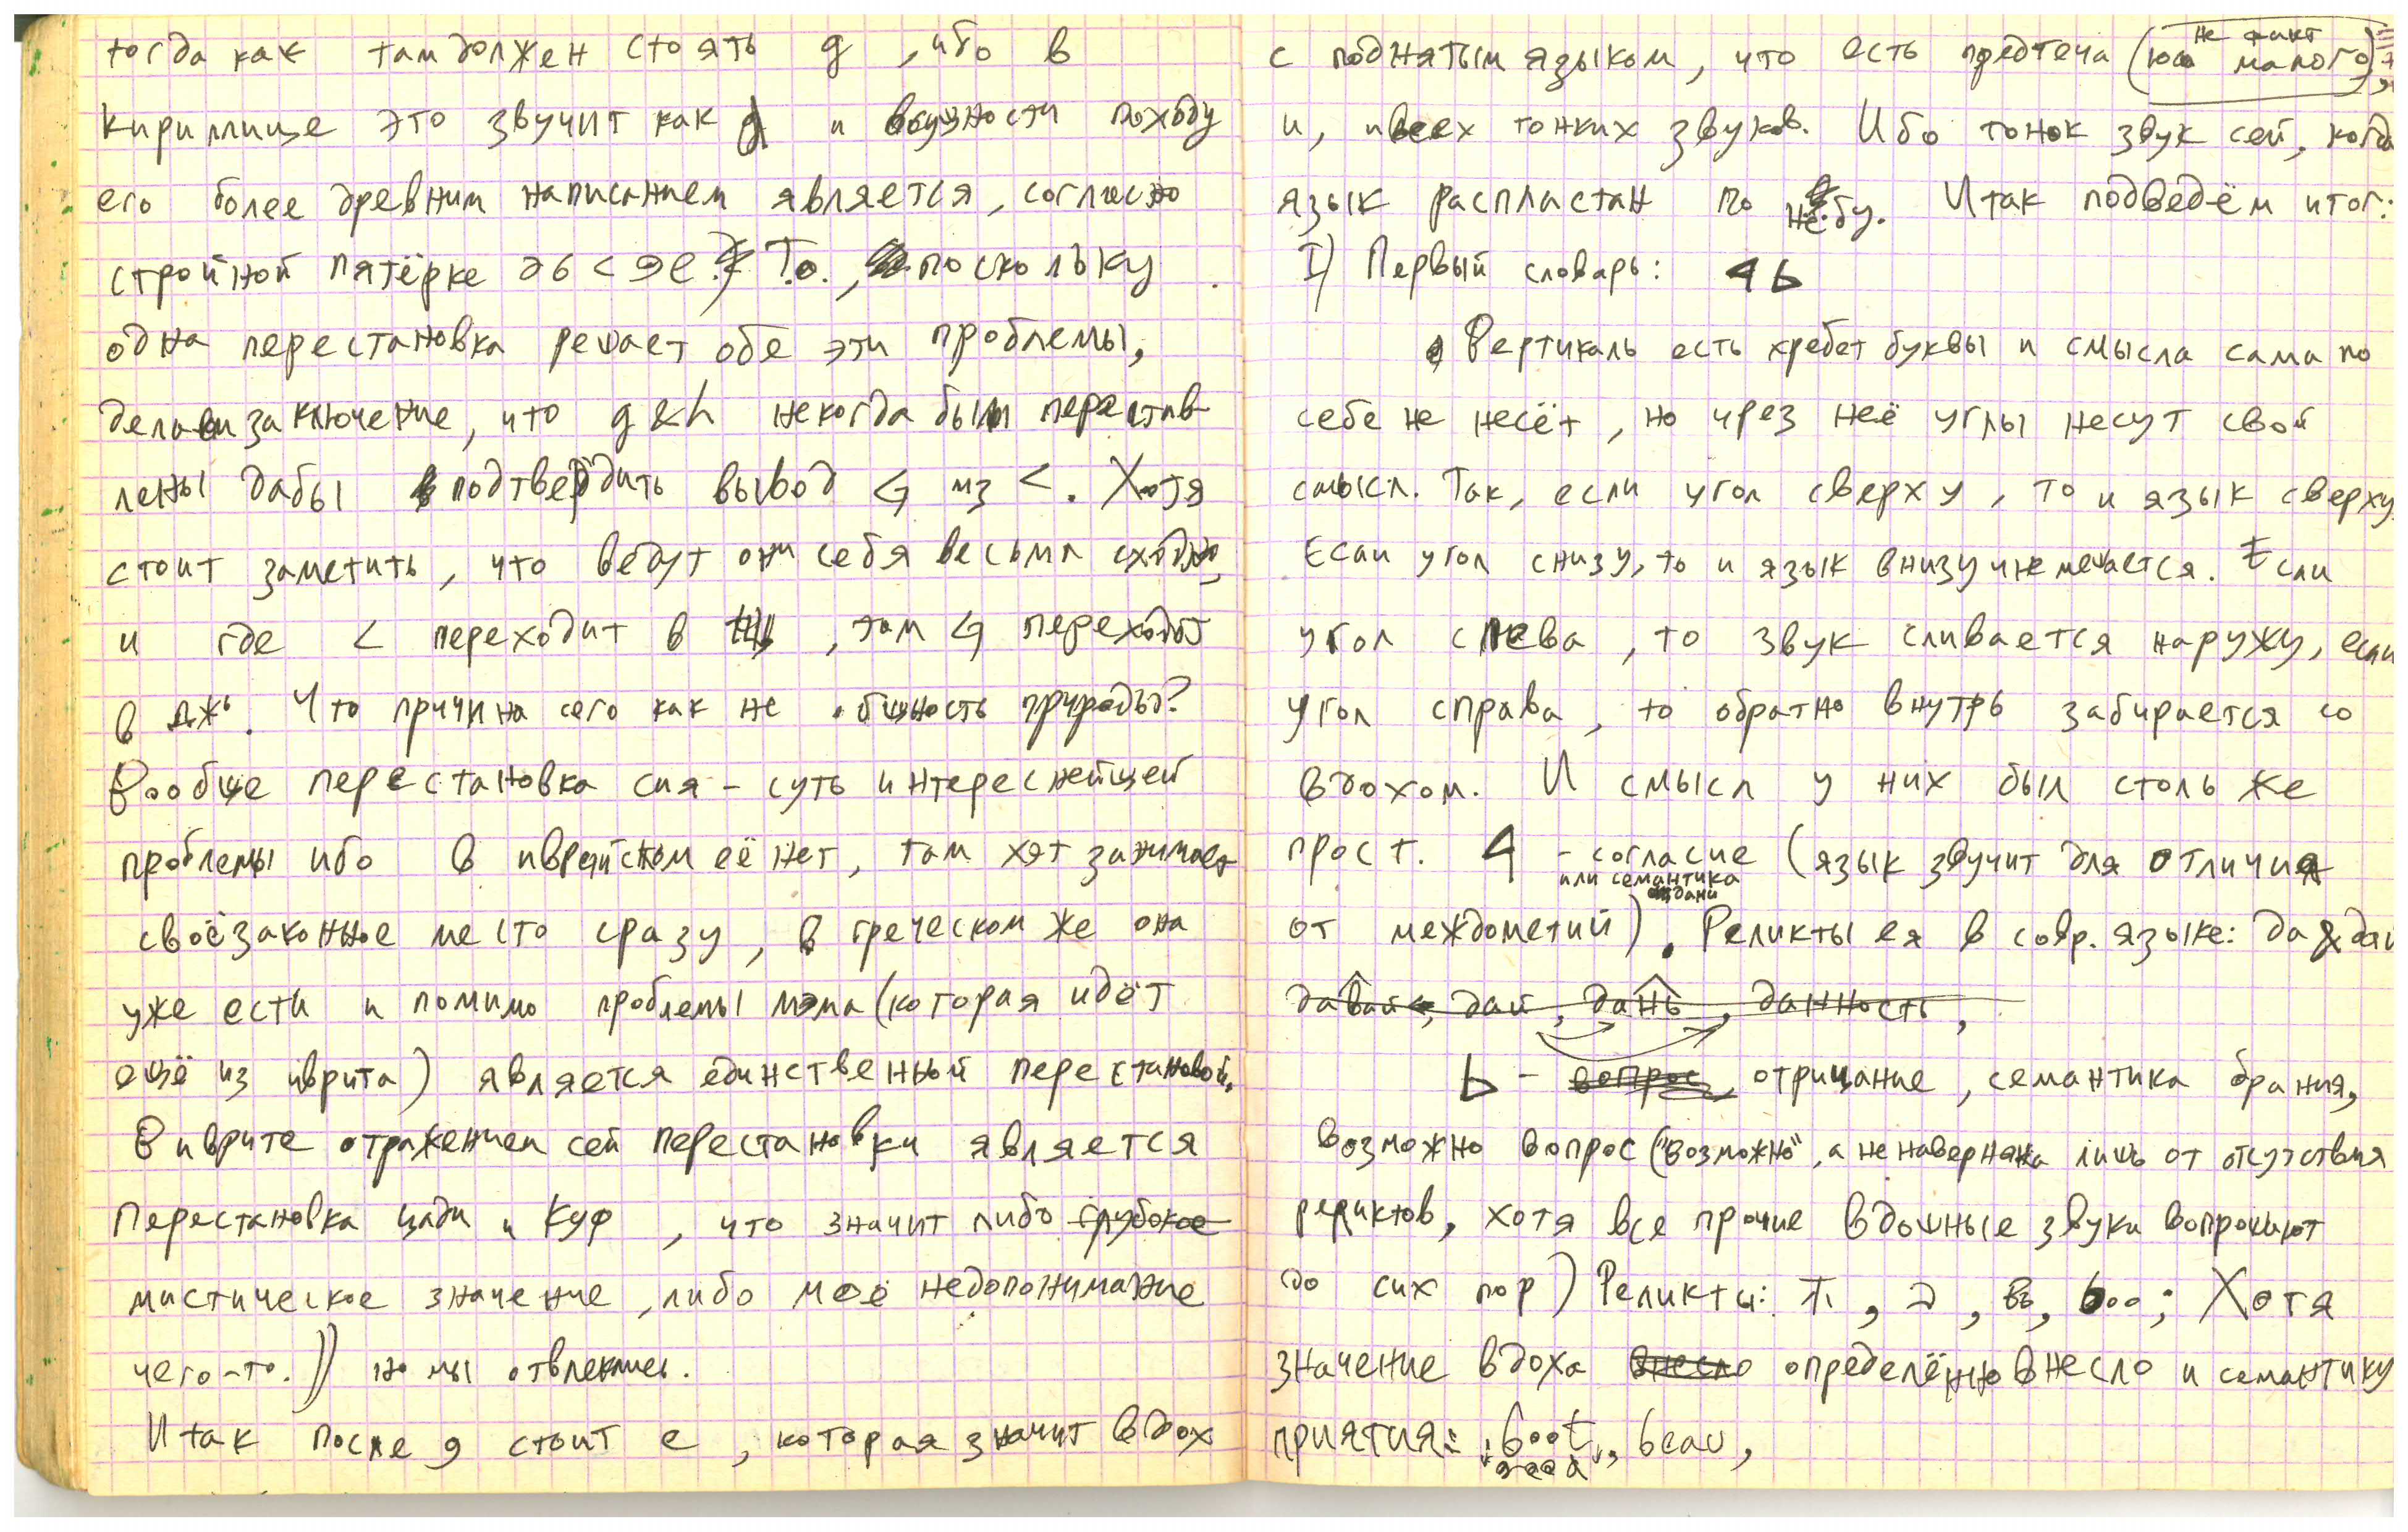 тогда как там должен стоять g, ибо в
кириллице это звучит как д и в сущности походу
его более древним написанием является, согласно
стройной пятёрке 

Т.о., поскольку
одна перестановка решает обе эти проблемы,
делаем заключение, что g & h некогда были перестав-
лены дабы подтвердить вывод G из <. Хотя
стоит заметить, что ведут они себя весьма сходно,
и где < переходит в , там G переходит
в джь. Что причина сего как не общность природы?
Вообще перестановка сия - суть интереснейшей
проблемы ибо в иврейском её нет, там хэт занимает
своё законное место сразу, в греческом же она
уже есть и помимо проблемы мэма (которая идёт
ещё из иврита) является единственной перестановой.
В иврите отражением сей перестановки является
перестановка цади и куф, что значит либо глубокое
мистическое значение, либо моё недопонимание
чего-то.)) но мы отвлеклись.
Итак после g стоит е, которая значит вдох
с поднятым языком, что есть предтеча (юса малого)
не факт
и, и всех тонких звуков. Ибо тонок звук сей, когда
язык распластан по нёбу. Итак подведём итог:
I) Первый словарь: 4 b
Вертикаль есть хребет буквы и смысла сама по
себе не несёт, но чрез неё углы несут свой
смысл. Так, если угол сверху, то и язык сверху.
Если угол снизу, то и язык внизу
не мешается. Если
угол слева, то звук сливается наружу, если
угол справа, то обратно внутрь забирается со
вдохом. И смысл у них был столь же
прост. 4 - согласие (язык звучит для отличия
или семантика дани
от междометий). Реликты ея в совр. языке: да & дай
давай, дай, дань, данность,
b - вопрос, отрицание, семантика брания,
возможно вопрос ("возможно", а не наверняка лишь от отсутствия
реликтов, хотя все прочие вдошные звуки вопрошают
до сих пор) Реликты: 
boo; Хотя
значение вдоха внесло определённо внесло и семантику
приятия: boot, beau,